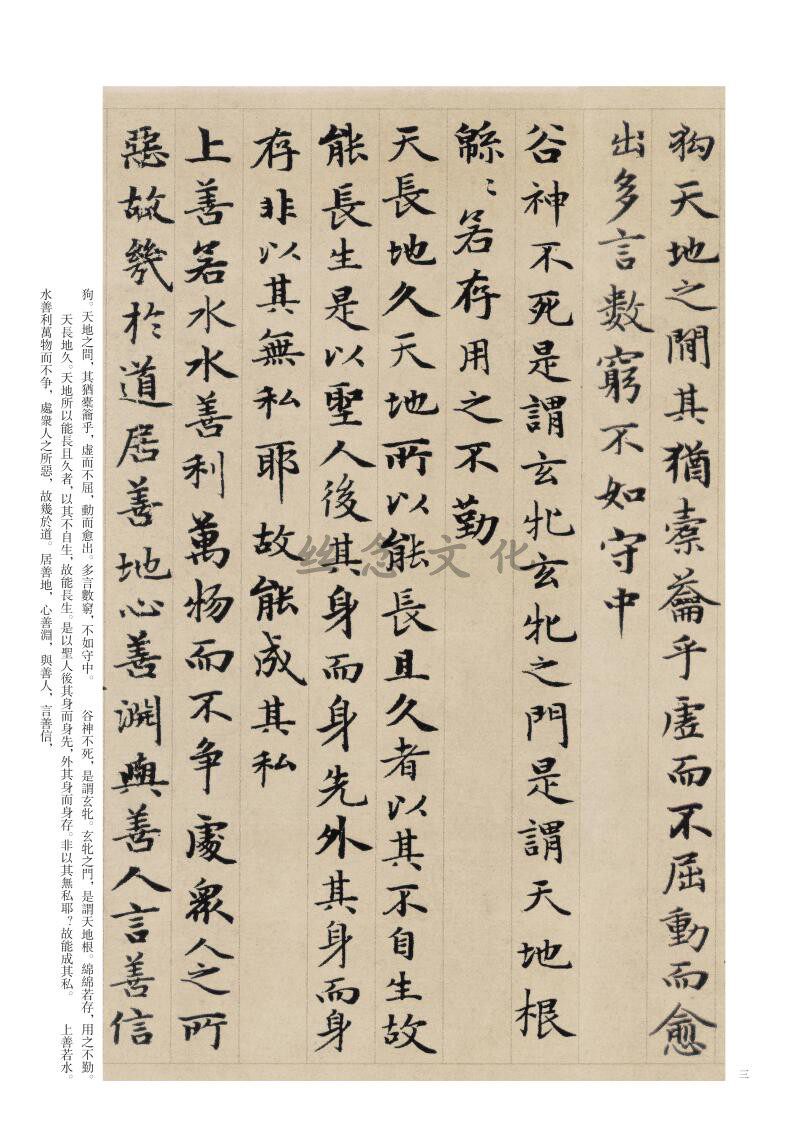 狗天地之間其猶橐籥乎虛而不屈動而愈
出多言數窮不如守中
谷神不死是謂玄牝玄牝之門是謂天地根
緜〻若存用之不勤
天長地久天地所以能長且久者以其不自生故
能長生是以聖人後其身而身先外其身而身
存非以其無私耶故能成其私
上善若水水善利萬物而不争處衆人之所
惡故幾於道居善地心善淵與善人言善信
丝念文化
狗。天地之間，其猶橐籥乎，虛而不屈，動而愈出。多言數窮，不如守中。　谷神不死，是謂玄牝。玄牝之門，是謂天地根。綿綿若存，用之不勤。
天長地久。天地所以能長且久者，以其不自生，故能長生。是以聖人後其身而身先，外其身而身存。非以其無私耶？故能成其私。　上善若水。
水善利萬物而不争，處衆人之所惡，故幾於道。居善地，心善淵，與善人，言善信，
三